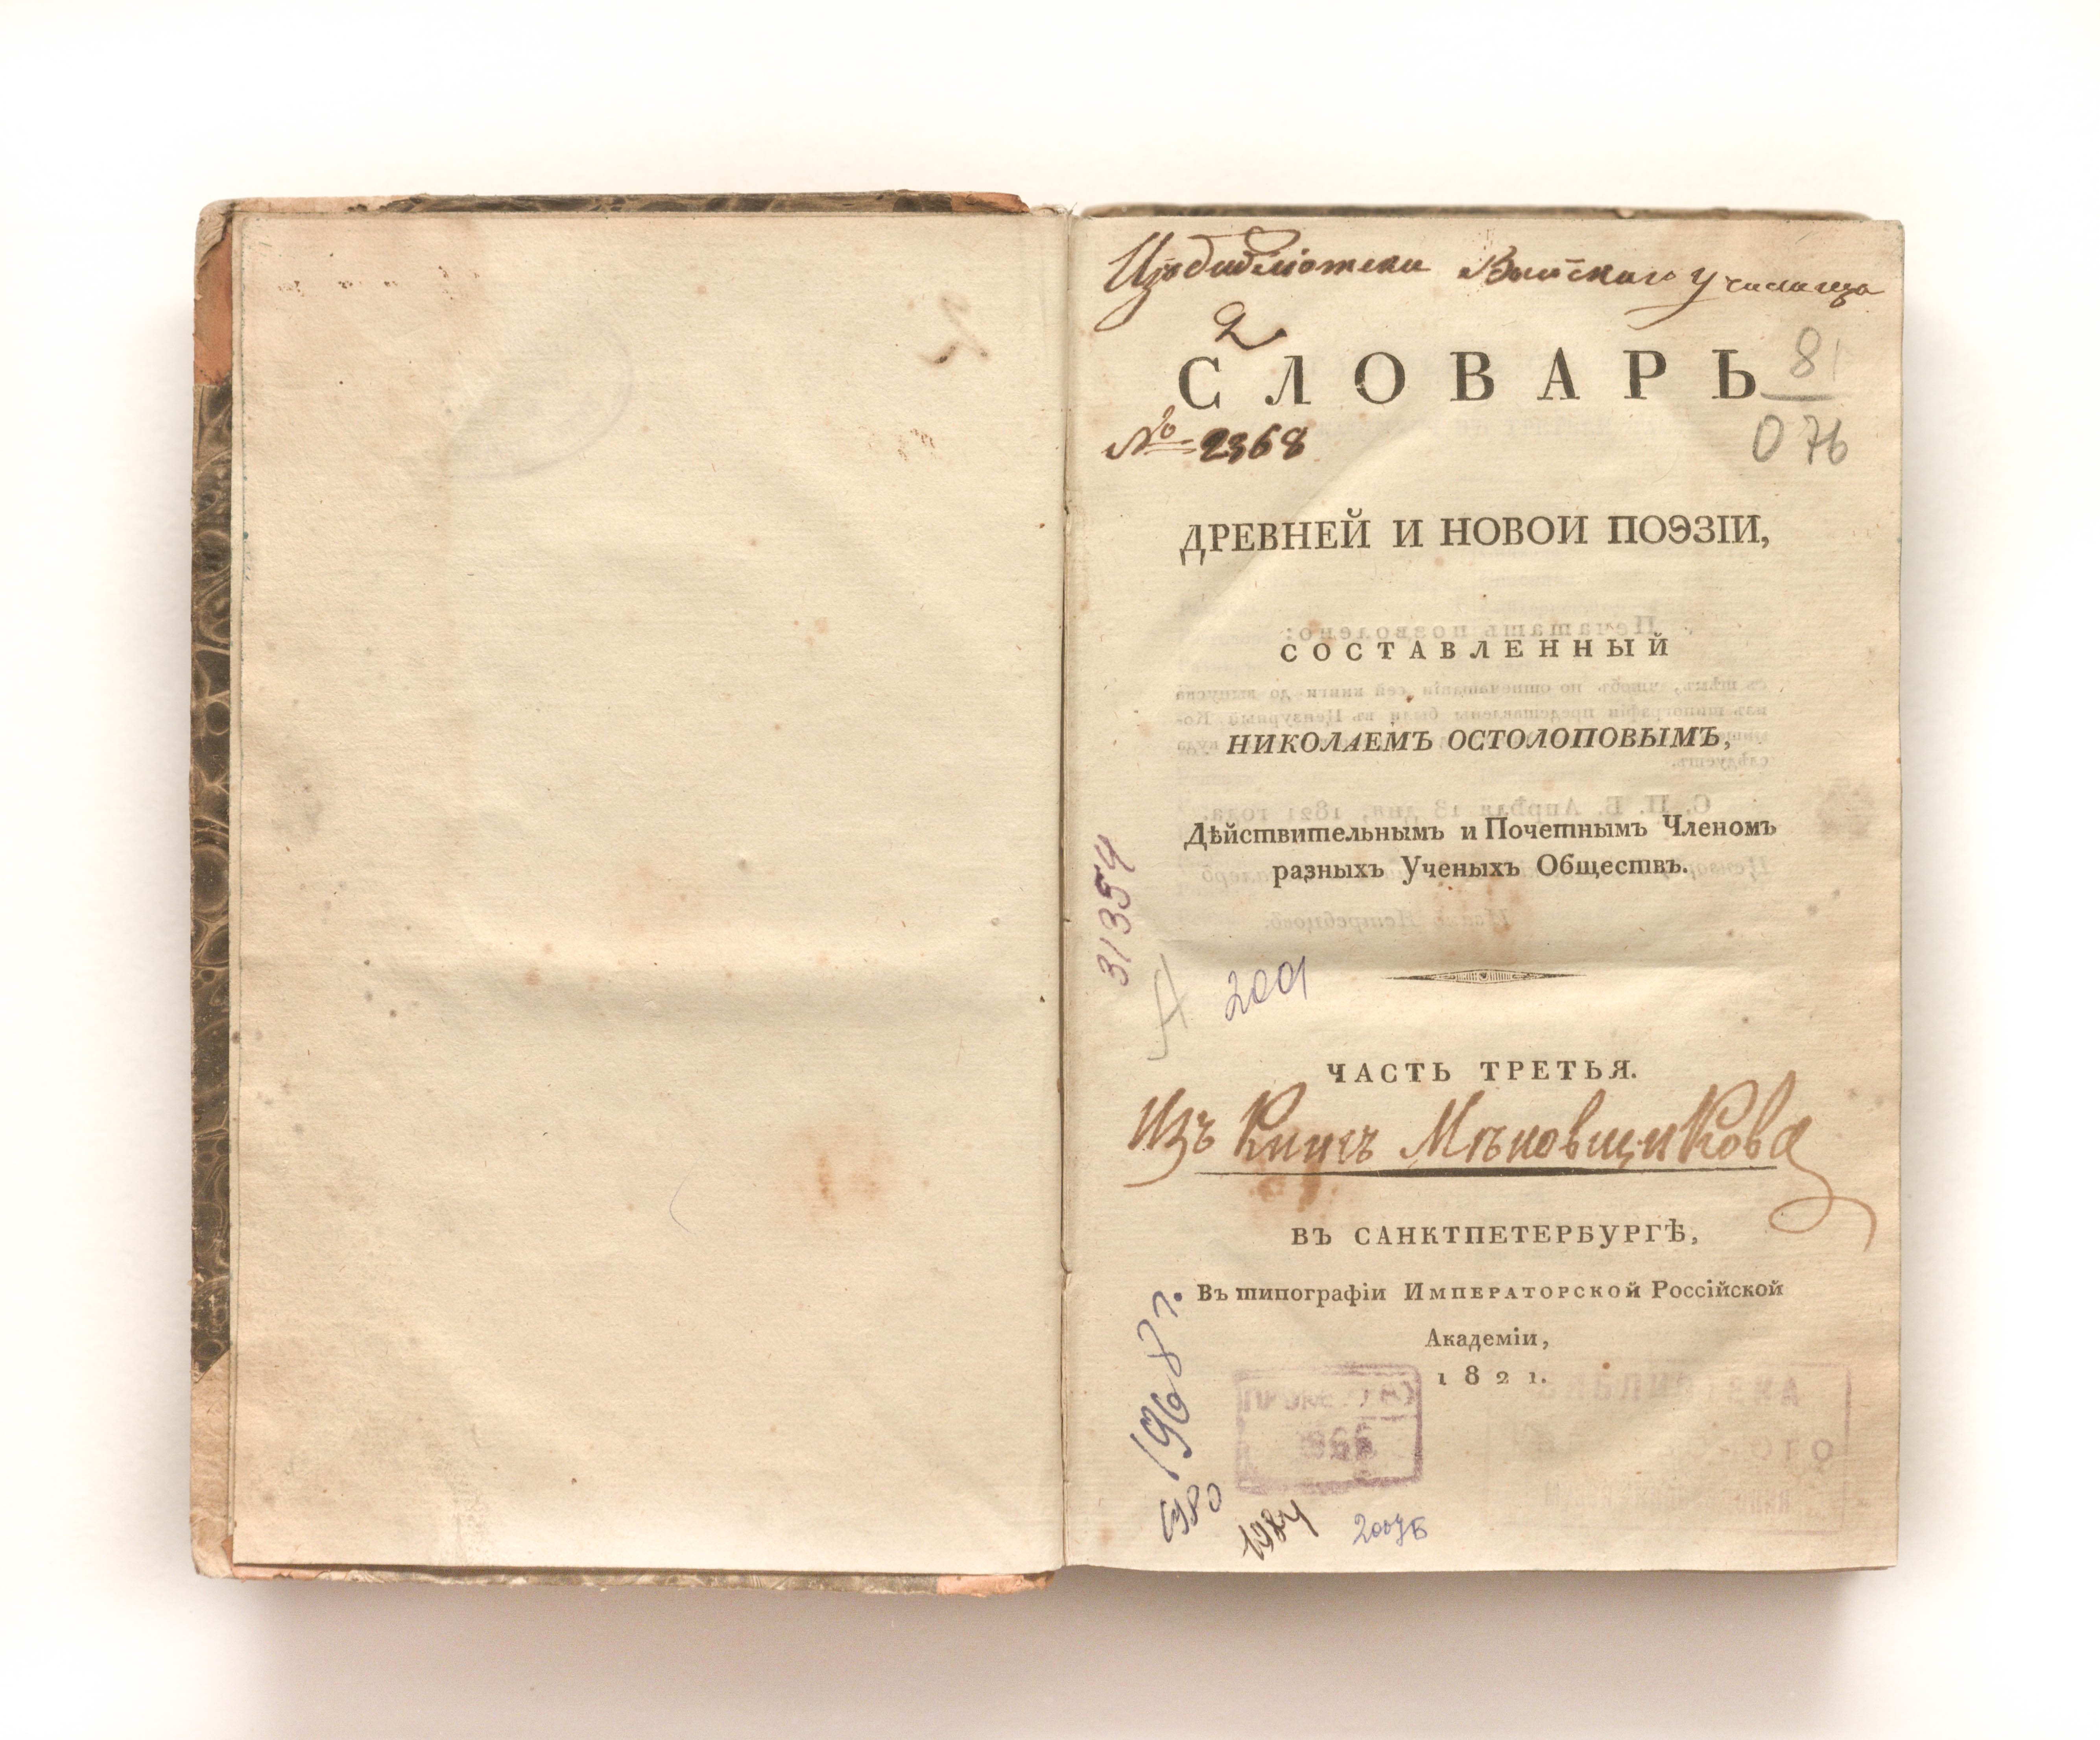 Изъ библіотеки Выйскаго училища
2
СЛОВАРЬ
81
076
№ 2368
ДРЕВНЕЙ И НОВОИ ПОЭЗІИ,
СОСТАВЛЕННЫЙ
НИКОЛАЕМЪ ОСТОЛОПОВЫМЪ,
Дѣйствительнымъ и Почетнымъ Членомъ
разныхъ Ученыхъ Обществъ.
31354
А 2001
ЧАСТЬ ТРЕТЬЯ.
Изъ Книгъ Мѣновщикова
ВЪ САНКТПЕТЕРБУРГѢ,
Въ типографіи Императорской Россійской
Академіи,
1821.
1968 г.
1984